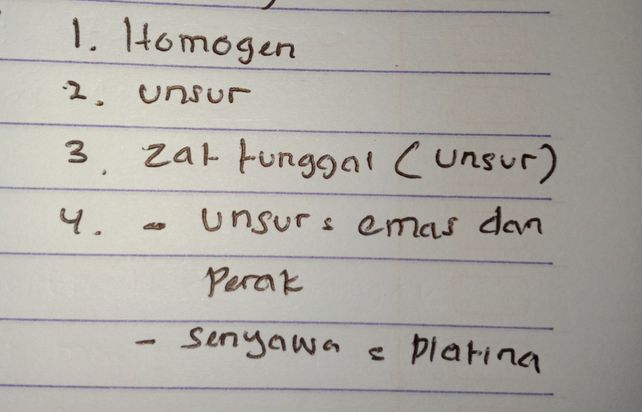 1. Homogen
2. unsur
3. zat tunggal (unsur)
4. - unsur : emas dan
Perak
- senyawa : platina